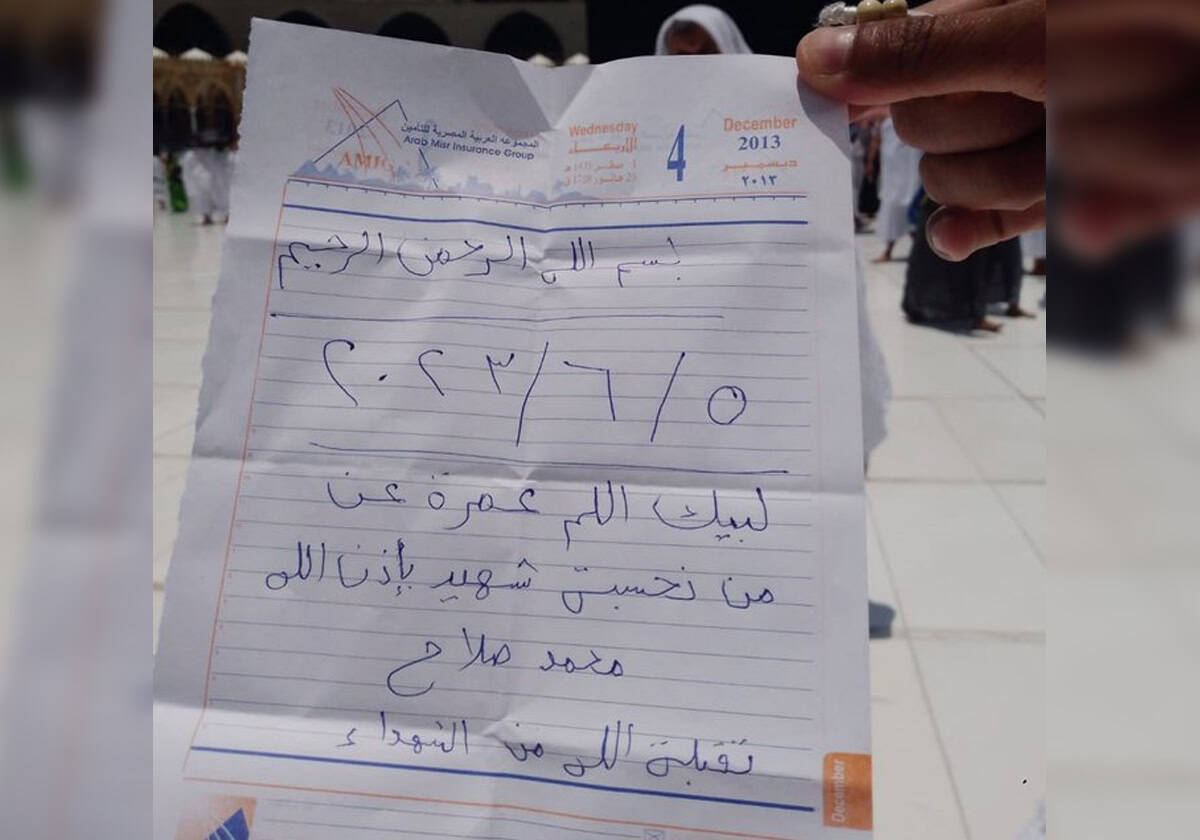 المجموعه العربية المصرية للتأمين
Arab Misr Insurance Group
AMIG
Wednesday
الأربعاء
4
December
2013
ديسمبر
٢٠١٣
بسم الله الرحمن الرحيم
٢٠٢٣/٦/٥
لبيك اللهم عمرة عن
من نحسبة شهيد بإذن الله
محمد صلاح
تقبلة الله من الشهداء
December